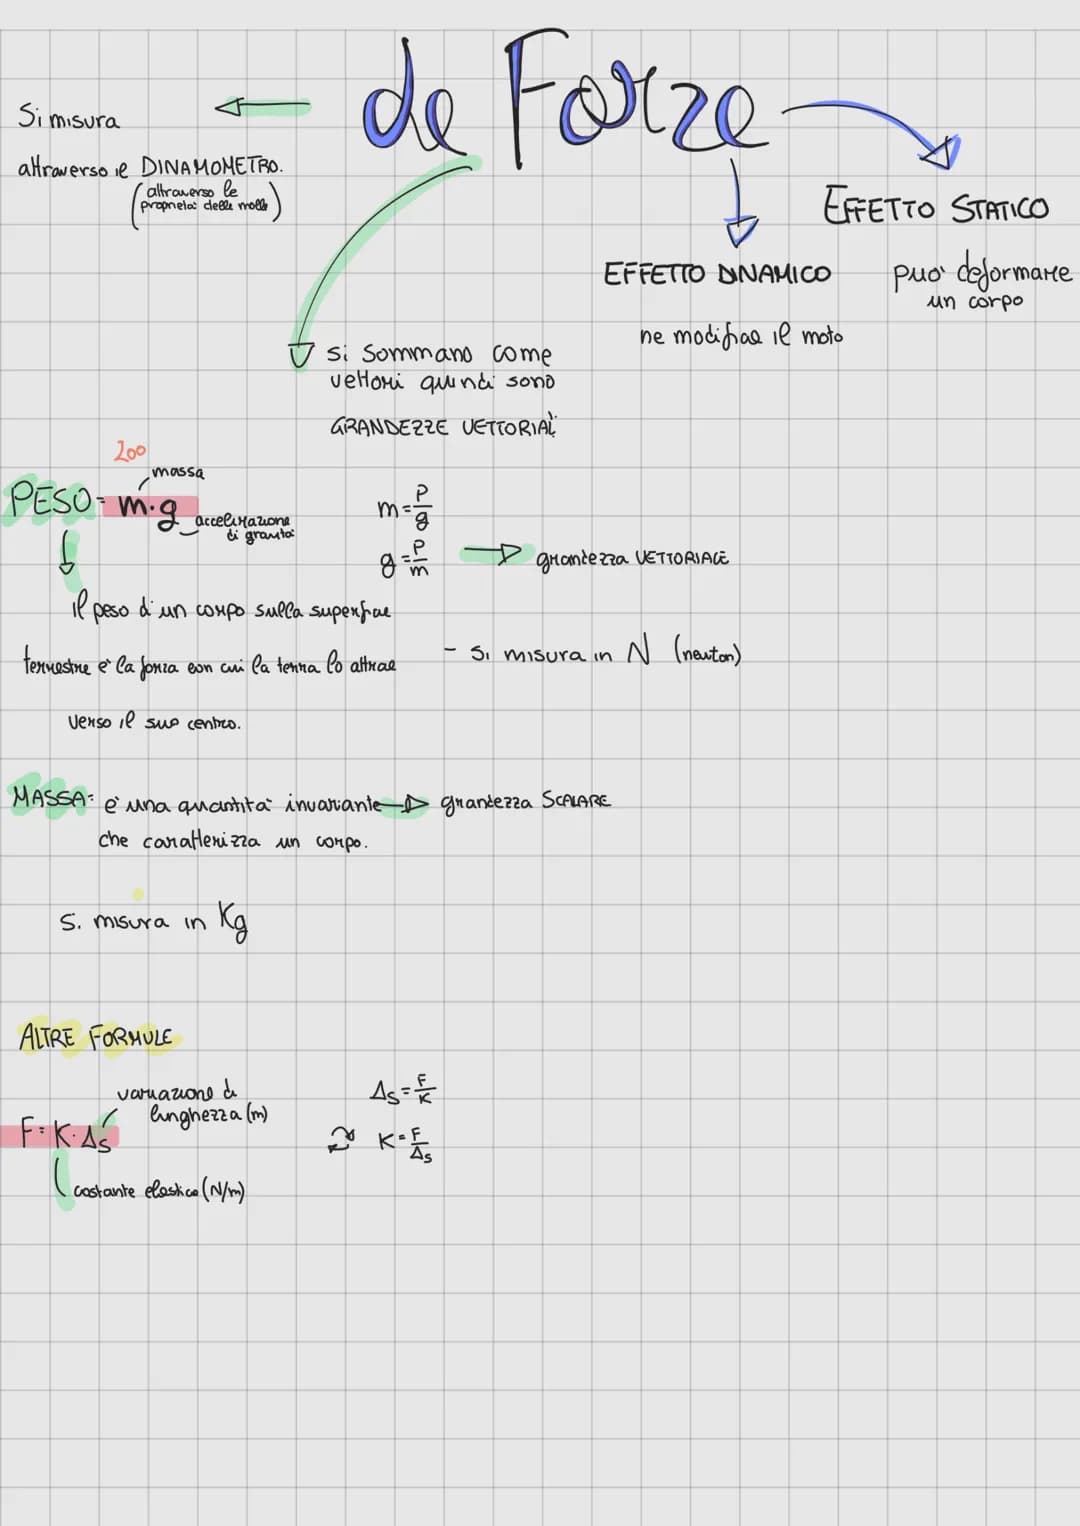 Le Forze
Si misura
attraverso il DINAMOMETRO.
(attraverso le
proprietà delle molle)
EFFETTO STATICO
può deformare
un corpo
EFFETTO DINAMICO
ne modifica il moto
si sommano come
vettori quindi sono
GRANDEZZE VETTORIALI
200
massa
PESO = m·g
accelerazione
di gravità
m = P/g
g = P/m
grandezza VETTORIALE
Il peso di un corpo sulla superficie
terrestre è la forza con cui la terra lo attrae
verso il suo centro.
- Si misura in N (newton)
MASSA: è una quantità invariante
grandezza SCALARE
che caratterizza un corpo.
Si misura in Kg
ALTRE FORMULE
variazione di
lunghezza (m)
F = K·Δs
costante elastica (N/m)
Δs = F/K
K = F/Δs